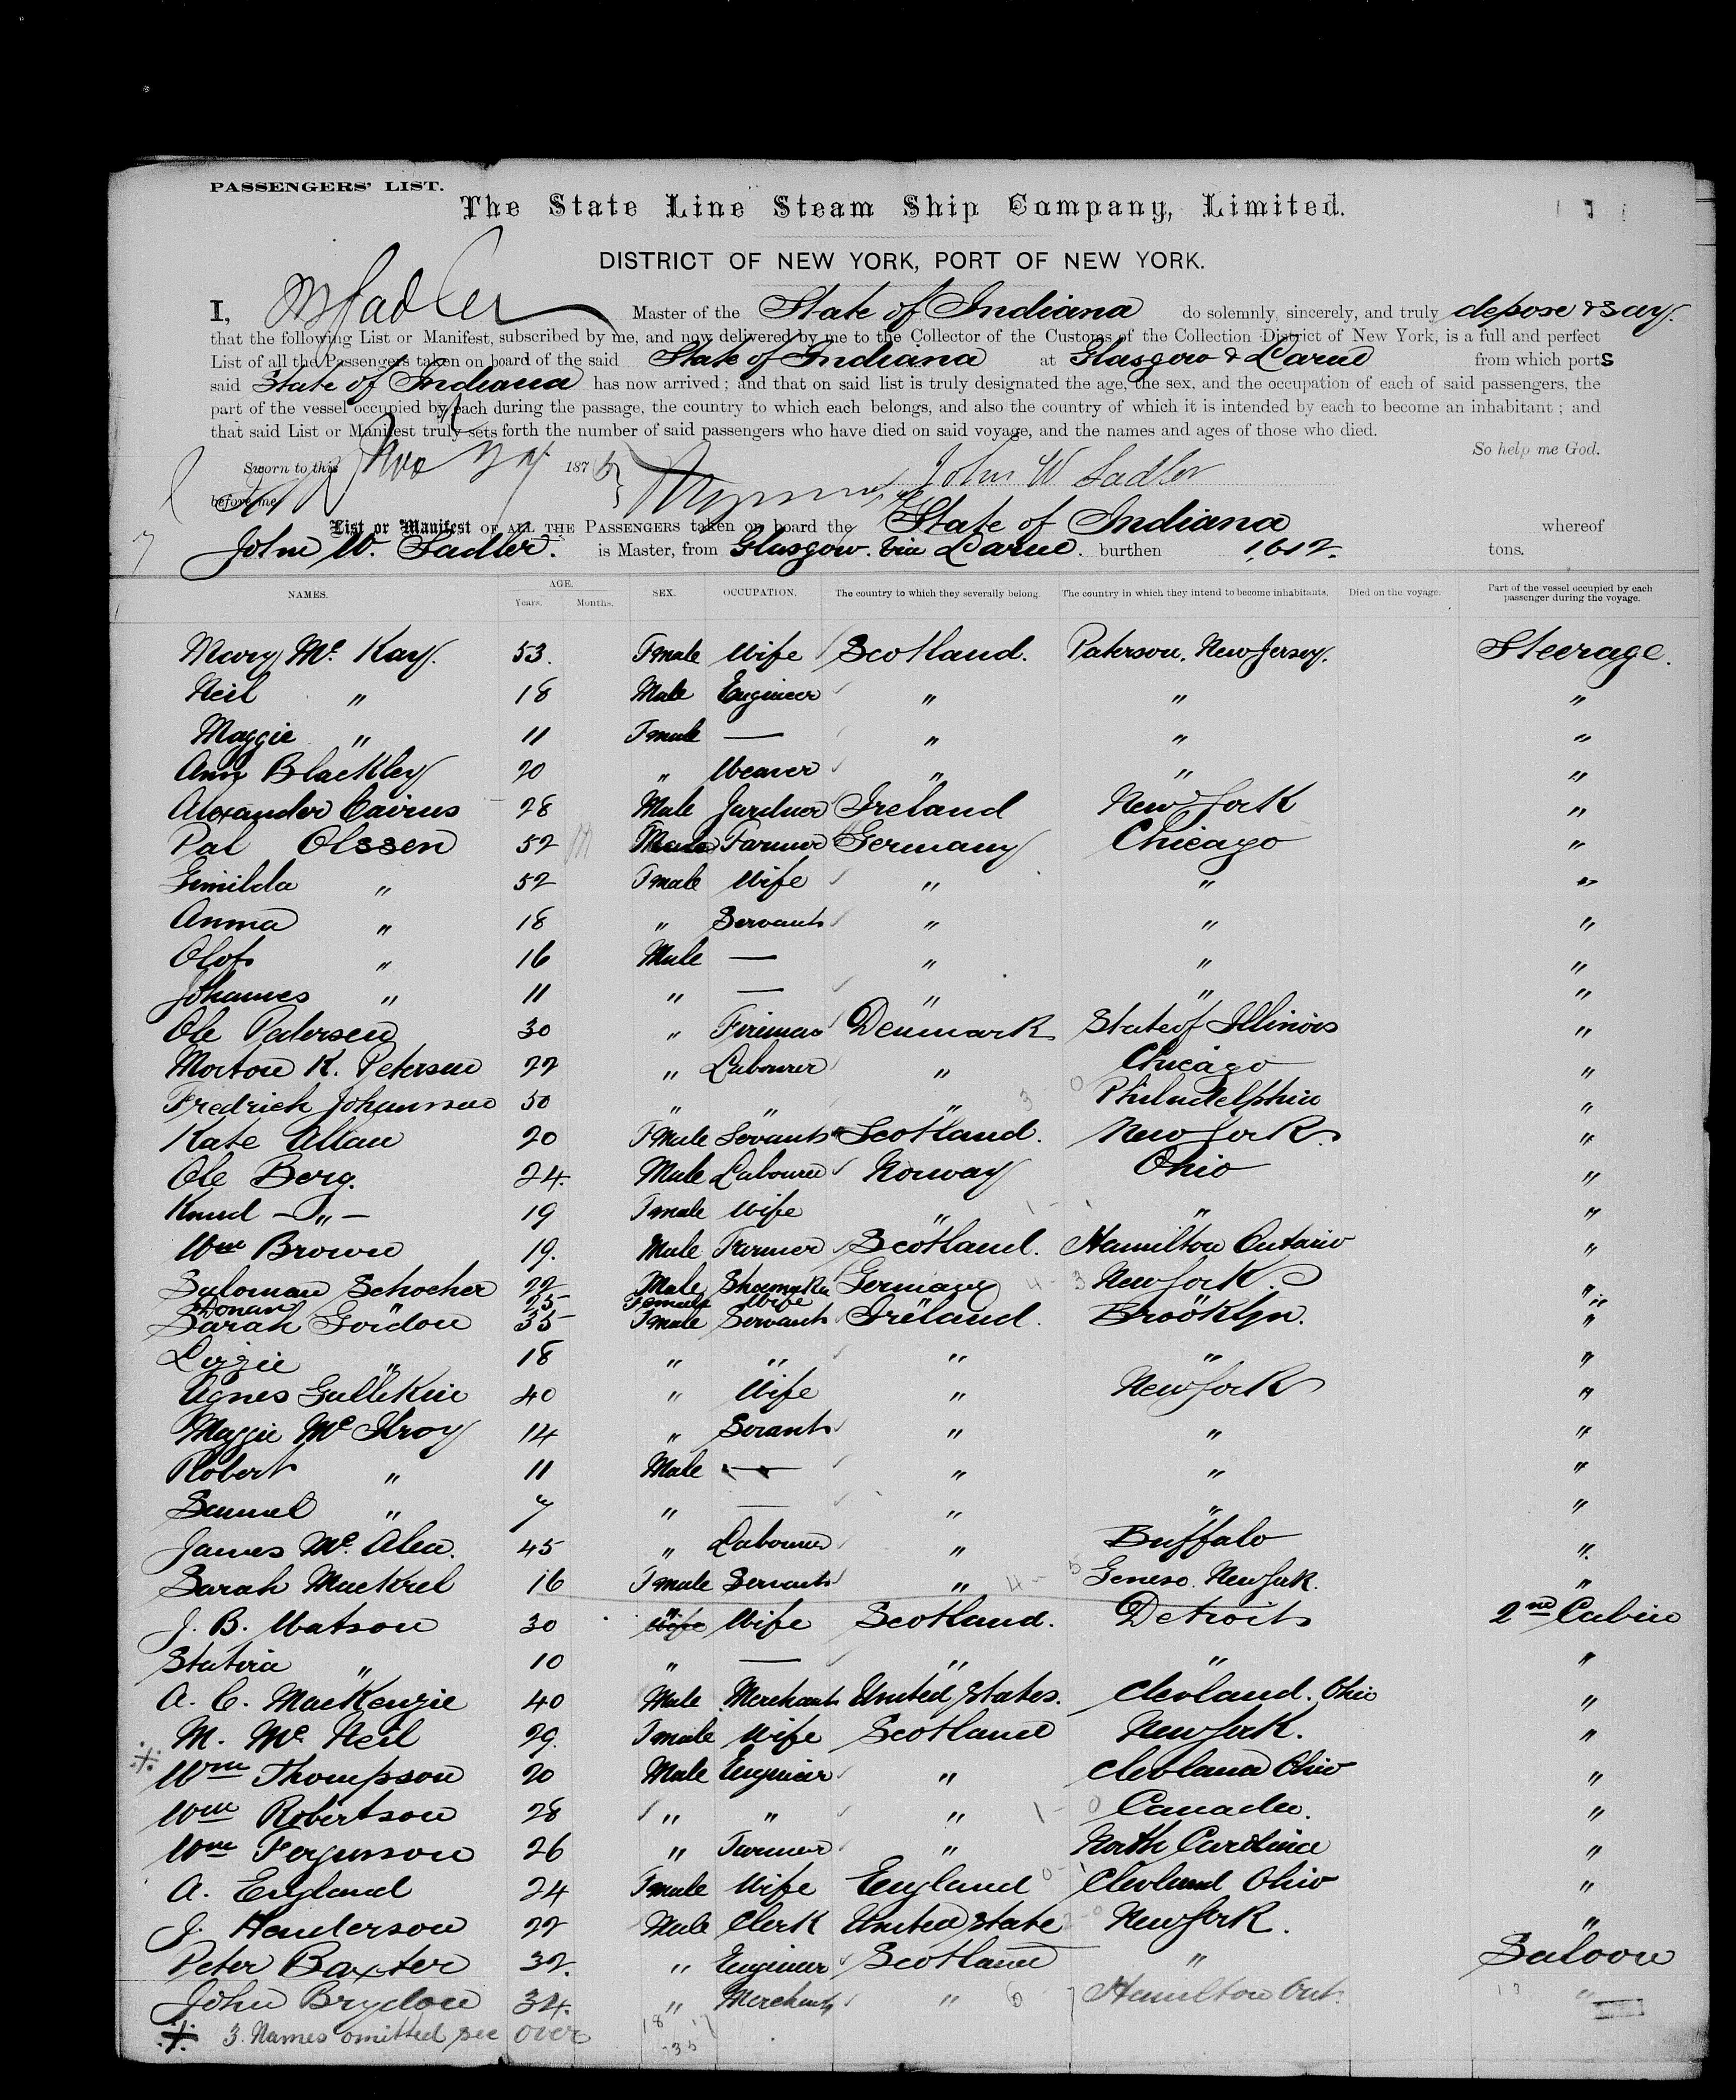 PASSENGERS' LIST.
The State Line Steam Ship Company, Limited.
DISTRICT OF NEW YORK, PORT OF NEW YORK.
I, Sadler Master of the State of Indiana do solemnly, sincerely, and truly depose & say.
that the following List or Manifest, subscribed by me, and now delivered by me to the Collector of the Customs of the Collection District of New York, is a full and perfect
List of all the Passengers taken on board of the said State of Indiana at Glasgow & Larne from which ports
said State of Indiana has now arrived; and that on said list is truly designated the age, the sex, and the occupation of each of said passengers, the
part of the vessel occupied by each during the passage, the country to which each belongs, and also the country of which it is intended by each to become an inhabitant; and
that said List or Manifest truly sets forth the number of said passengers who have died on said voyage, and the names and ages of those who died.
So help me God.
Sworn to this Nov 187
before me
John W Sadler
List or Manifest OF ALL THE PASSENGERS taken on board the State of Indiana whereof
John W. Sadler. is Master, from Glasgow. via Larne. burthen 1,612. tons.
NAMES. AGE. Years. Months. SEX. OCCUPATION. The country to which they severally belong. The country in which they intend to become inhabitants. Died on the voyage. Part of the vessel occupied by each passenger during the voyage.
Mary Mc. Kay. 53. Female Wife Scotland. Paterson. New Jersey. Steerage.
Neil " 18 Male Engineer " " "
Maggie " 11 Female — " " "
Ann Blackley 20 " Weaver " " "
Alexander Cairns 28 Male Gardner Ireland New York "
Pal Olssen 52 Male Farmer Germany Chicago "
Gunilda " 52 Female Wife " " "
Anna " 18 " Servant " " "
Olof " 16 Male — " " "
Johannes " 11 " — " " "
Ole Pedersen 30 " Fireman Denmark State of Illinois "
Morton K. Petersen 22 " Labourer " Chicago "
Fredrich Johannsen 50 " " " Philadelphia "
Kate Allan 20 Female Servant Scotland. New York "
Ole Berg. 24. Male Labourer Norway Ohio "
Knud — " — 19 Female Wife " " "
Wm Brown 19. Male Farmer Scotland. Hamilton Ontario "
Saloman Schocher 22 Male Shoemaker Germany New York "
Donan " 25 Female Wife " " "
Sarah Gordon 35 Female Servant Ireland. Brooklyn. "
Lizzie " 18 " " " " "
Agnes Gullikin 40 " Wife " New York "
Maggie Mc Ilroy 14 " Servant " " "
Robert " 11 Male — " " "
Samuel " 7 " — " " "
James Mc. Alea. 45 " Labourer " Buffalo "
Sarah Mackrel 16 Female Servant " Geneso. New York. "
J. B. Watson 30 " Wife Scotland. Detroit 2nd Cabin
Statira " 10 " — " " "
A. C. MacKenzie 40 Male Merchant United States. Clevland. Ohio "
M. Mc. Neil 29. Female Wife Scotland New York. "
Wm Thompson 20 Male Engineer " Clevland Ohio "
Wm Robertson 28 " " " Canada. "
Wm Fergusson 26 " Farmer " North Carolina "
A. England 24 Female Wife England Clevland Ohio "
J. Henderson 22 Male Clerk United State New York. "
Peter Baxter 32. " Engineer Scotland " Saloon
John Brydon 34. " Merchant " Hamilton Ont. "
3. Names omitted see over